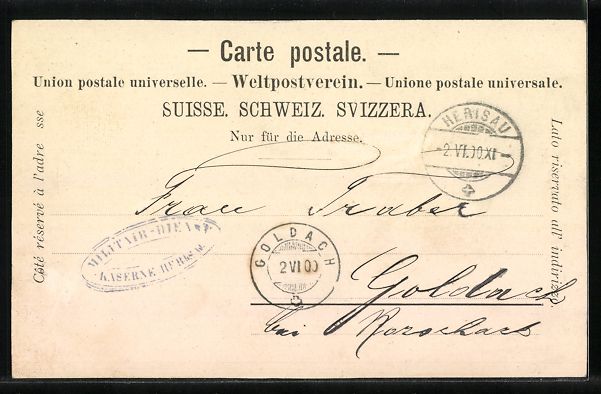 — Carte postale. —
Union postale universelle. — Weltpostverein. — Unione postale universale.
SUISSE. SCHWEIZ. SVIZZERA.
Nur für die Adresse.
Côté réservé à l'adre sse
Lato riservato all' indirizzo.
HERISAU
-2.VI.00.XI-
Frau Traber
MILITAIR-DIENST
KASERNE HERISAU
GOLDACH
2 VI 00
Goldach
bei Rorschach